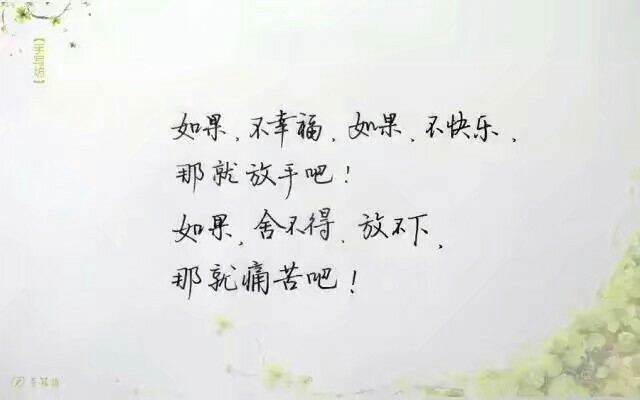 【手写坊】
如果，不幸福，如果，不快乐，
那就放手吧！
如果，舍不得、放不下，
那就痛苦吧！
手写坊